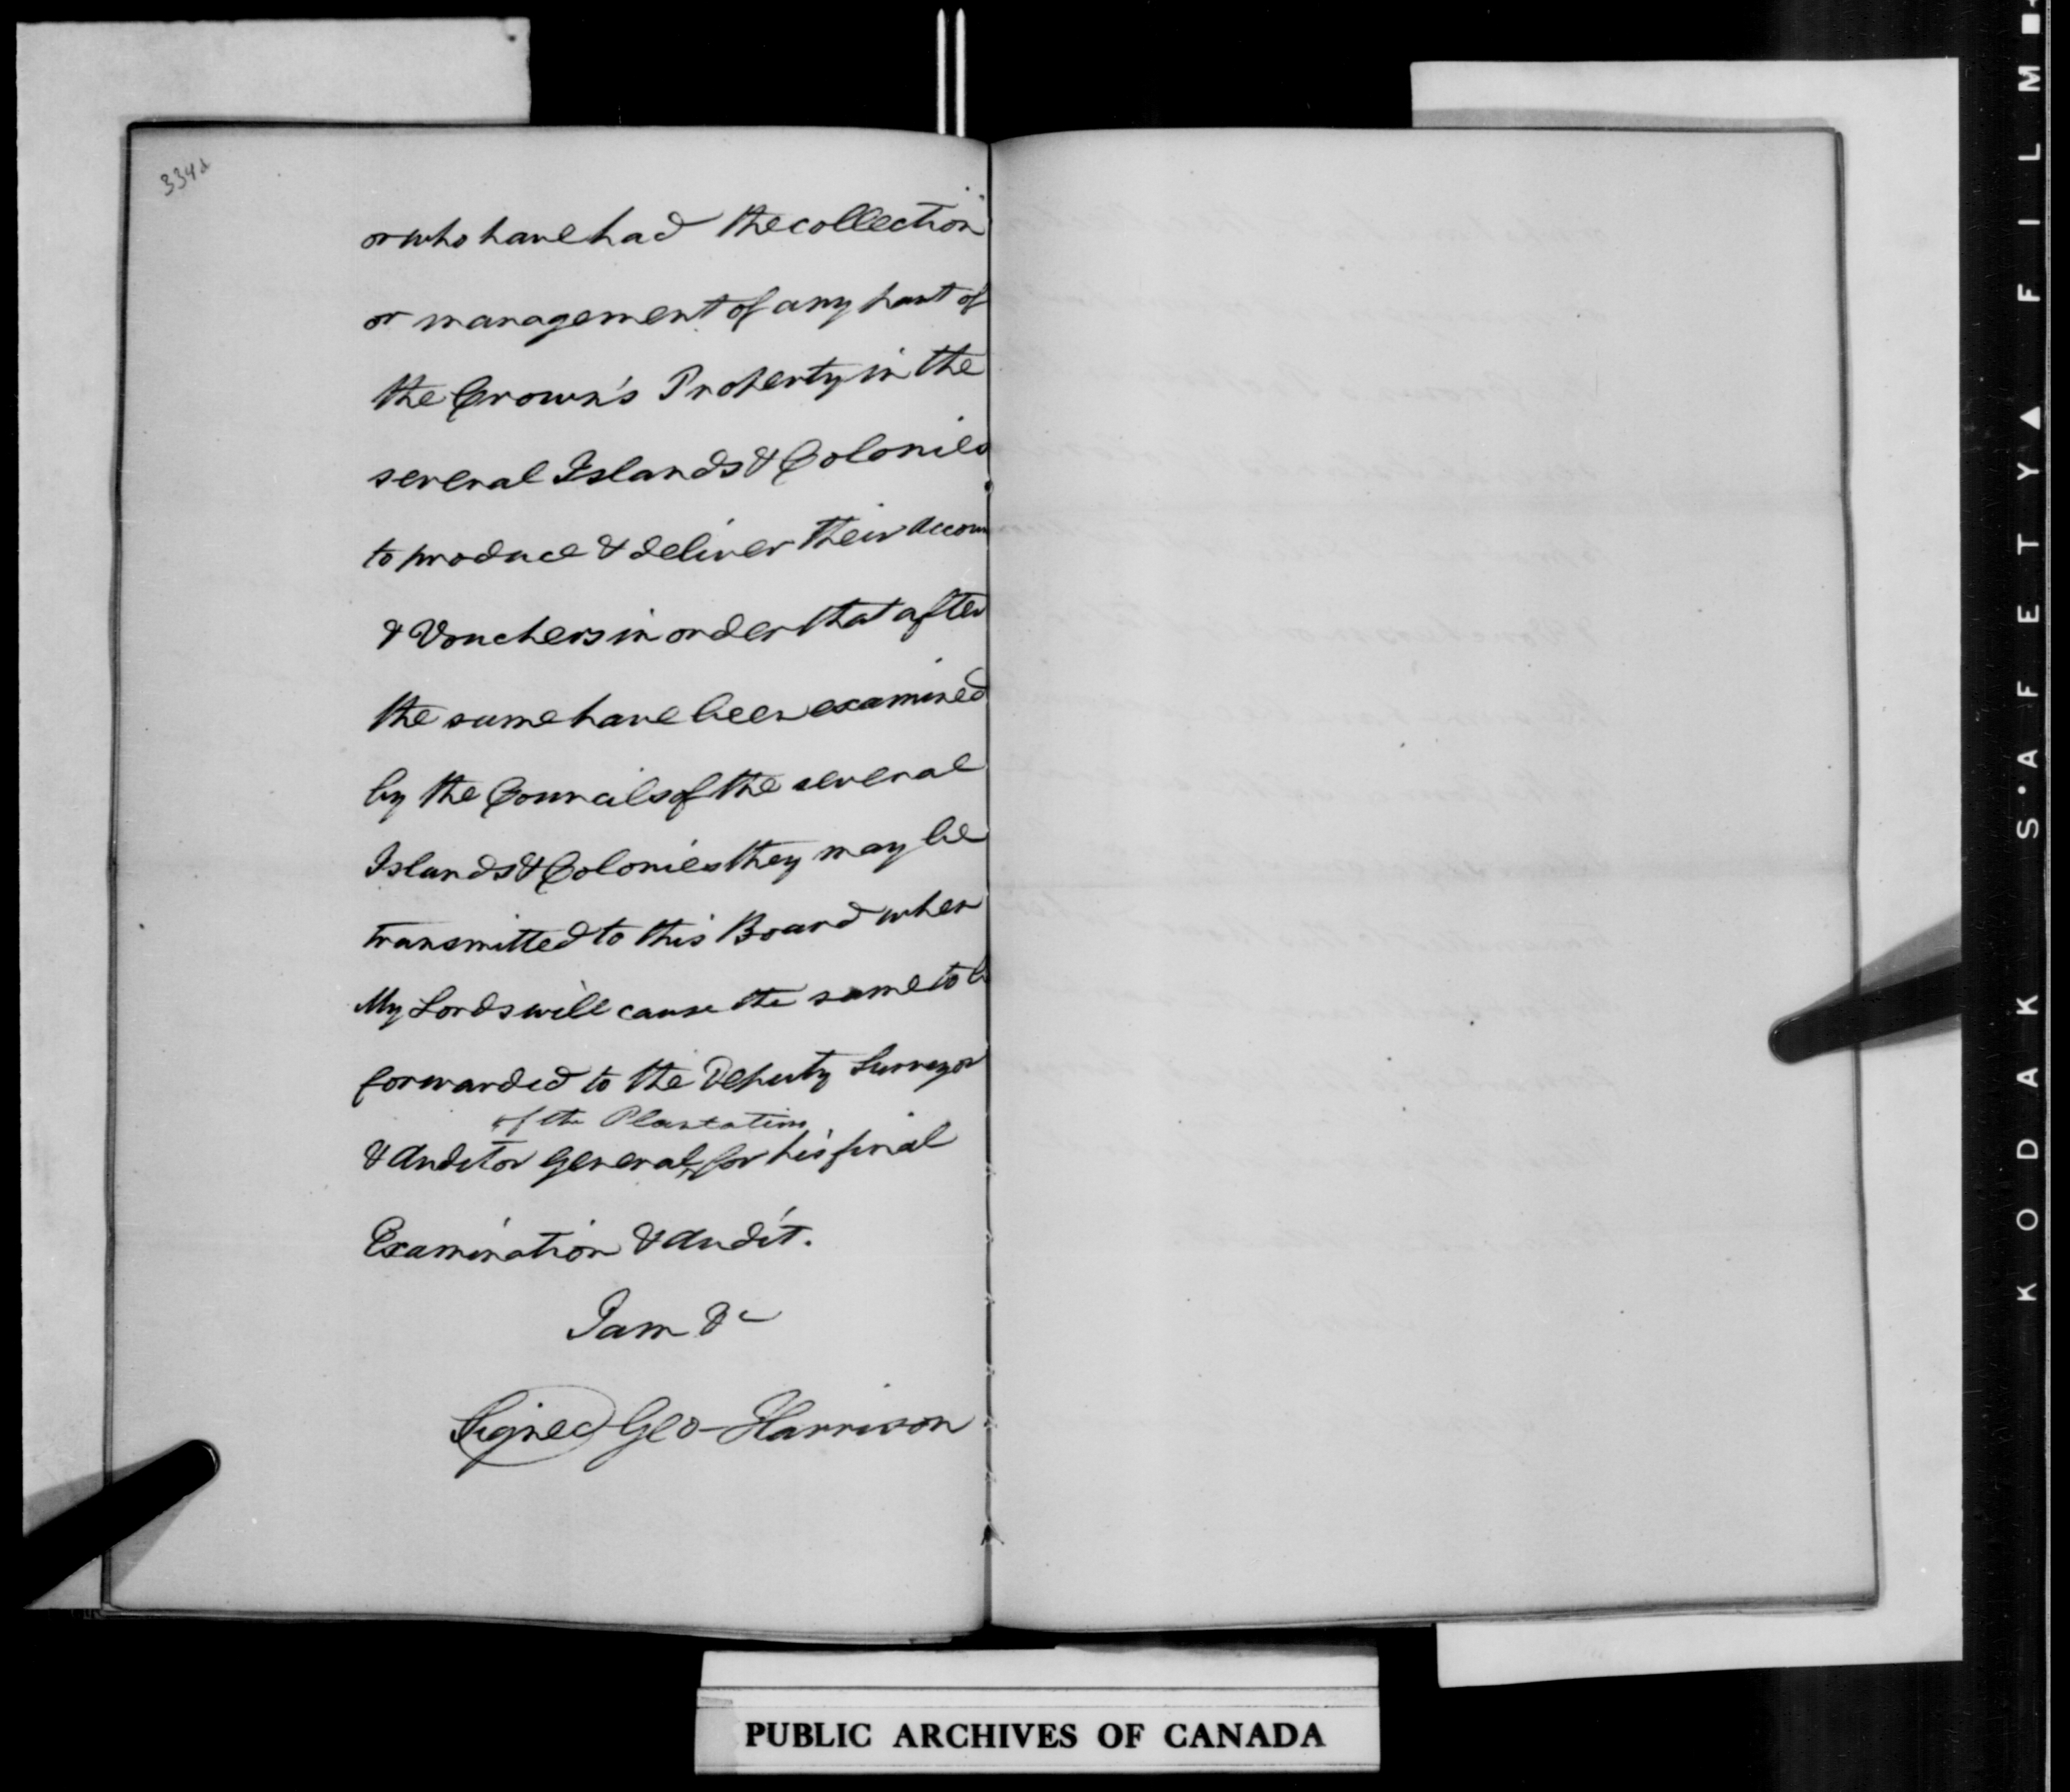 334d
or who have had the collection
or management of any part of
the Crown's Property in the
several Islands & Colonies
to produce & deliver their Accoun
& Vouchers in order that after
the same have been examined
by the Councils of the several
Islands & Colonies they may be
transmitted to this Board when
My Lords will cause the same to b
forwarded to the Deputy Surveyor
of the Plantations
& Auditor General, for his final
Examination & Audit.
I am &c
Signed) Geo Harrison
PUBLIC ARCHIVES OF CANADA
KODAK S·AFETY▲ FILM